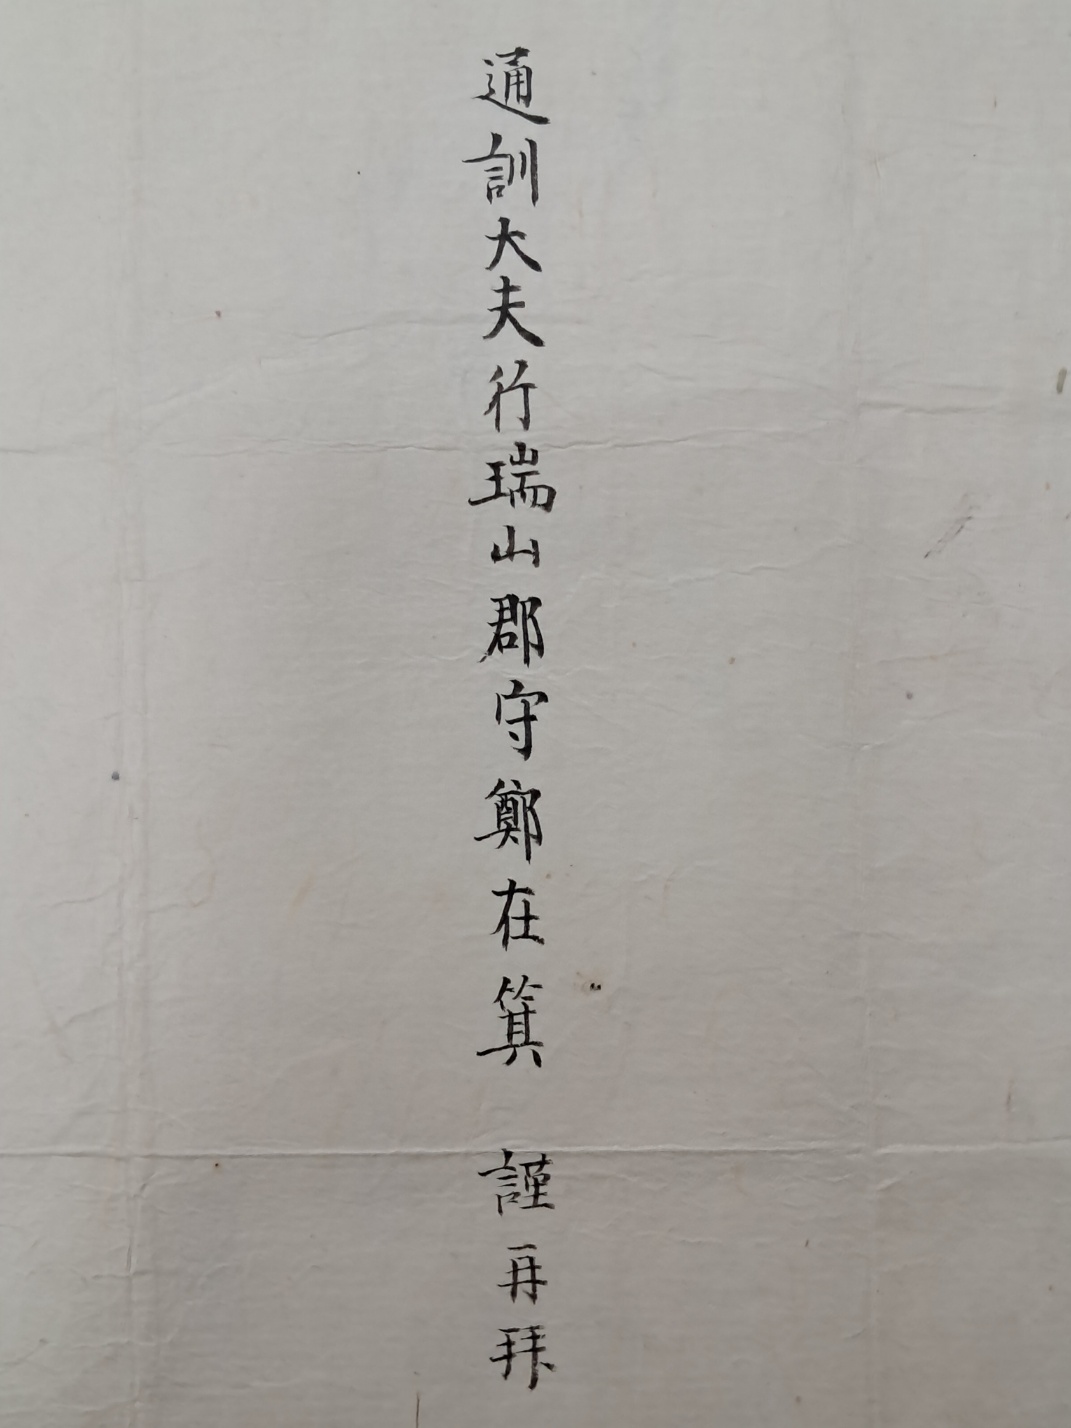 通訓大夫行瑞山郡守鄭在箕 謹再拜